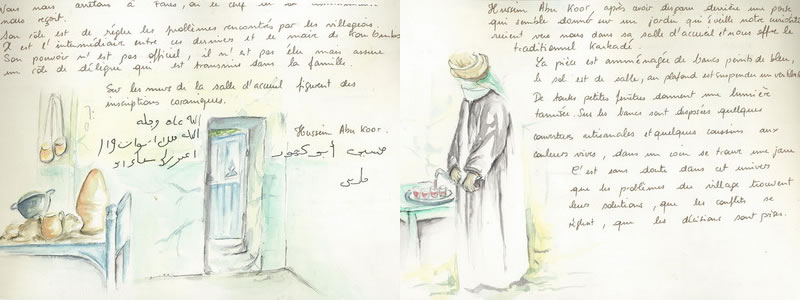 Vous nous arrêtons à Fares, où le chef
nous reçoit.
Son rôle est de régler les problèmes rencontrés par les villageois.
Il est l'intermédiaire entre ces derniers et le maire de Kom Ombo
Son pouvoir n'est pas officiel, il n'est pas élu mais assure
un rôle de délégué qui est transmise dans la famille.
Sur les murs de la salle d'acueil figurent des
inscriptions coraniques.
Hussein Abu Koor.
حسين أبو كور
فارس
Hussein Abu Koor, après avoir disparu derrière une porte
qui semble donner sur un jardin qui éveille notre curiosité
revient vers nous dans sa salle d'accueil et nous offre le
traditionnel Karkadé.
La pièce est amménagée de bancs peints de bleu,
le sol est de sable, au plafond est suspendu un ventilateur
De toutes petites fenêtres donnent une lumière
tamisée. Sur les bancs sont disposées quelques
couvertures artisanales et quelques coussins aux
couleurs vives, dans un coin se trouve une
C'est sans doute dans cet univers
que les problèmes du village trouvent
leurs solutions, que les conflits se
règlent, que les décisions sont prises.